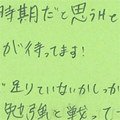 時期だと思うけど
が待ってます!
足りていないかしっか
勉強と戦って